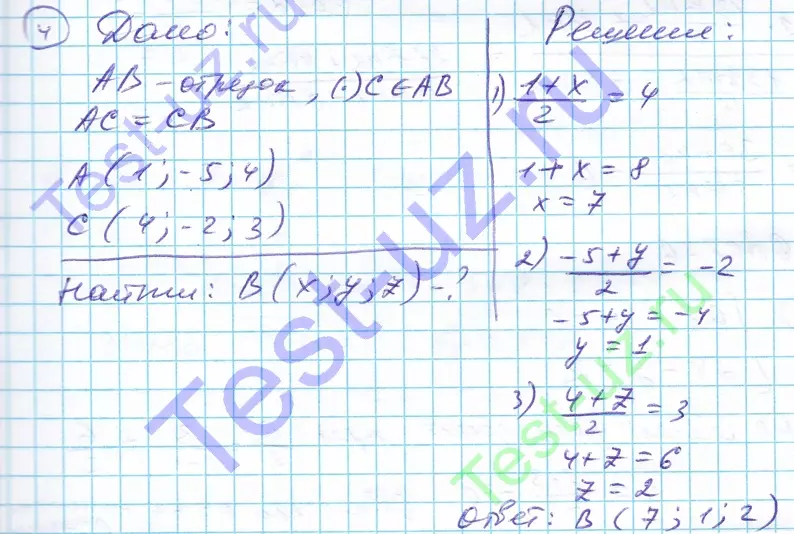 4 Дано:
AB - отрезок, (·) C ∈ AB
AC = CB
A (1; -5; 4)
C (4; -2; 3)
Найти: B (x; y; z) - ?
Решение:
1) (1+x)/2 = 4
1+x = 8
x = 7
2) (-5+y)/2 = -2
-5+y = -4
y = 1
3) (4+z)/2 = 3
4+z = 6
z = 2
Ответ: B (7; 1; 2)
Test-uz.ru
Test-uz.ru
Test-uz.ru